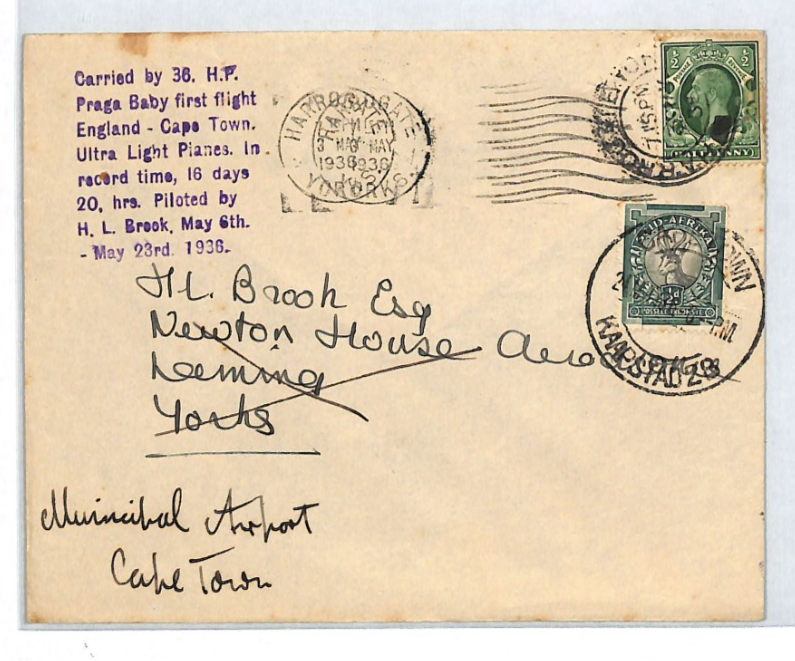 Carried by 36. H.P.
Praga Baby first flight
England - Cape Town.
Ultra Light Planes. In
record time, 16 days
20, hrs. Piloted by
H. L. Brook, May 6th.
- May 23rd. 1936.
HARROGATE
MAY
1936
YORKS
½
½
HALFPENNY
SUID-AFRIKA
CAPE TOWN
24
PM
KAAPSTAD
H.L. Brook Esq
Newton House
Leeming
Yorks
Municibal Airport
Cape Town